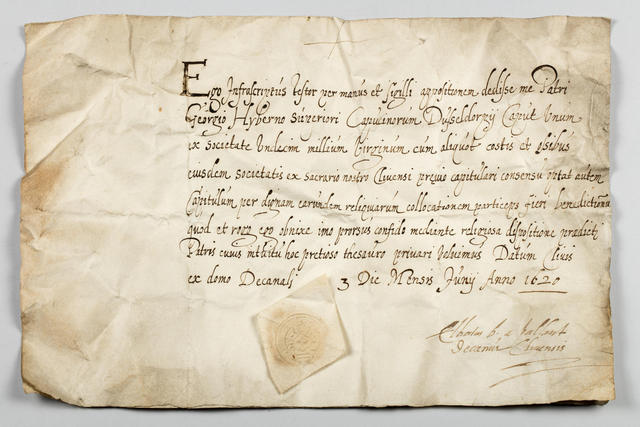 Ego Infrascriptus testor per manus et sigilli appositionem dedisse me Patri
Georgio Hyberno Superiori Capucinorum Dusseldorpij Caput Unum
ex Societate Undecim millium Virginum cum aliquot costis et ossibus
eiusdem societatis ex sacrario nostro Clivensi prævio capitulari consensu optat autem
Capitulum per dignam earundem reliquiarum collocationem particeps fieri benedictionum
quod et rogo ego obnixe imo prorsus confido mediante religiosa dispositione prædicti
Patris cuius intuitu hoc pretioso thesauro privari volumus Datum Clivis
ex domo Decanali 3 Die Mensis Junij Anno 1620
Decanus Clivensis